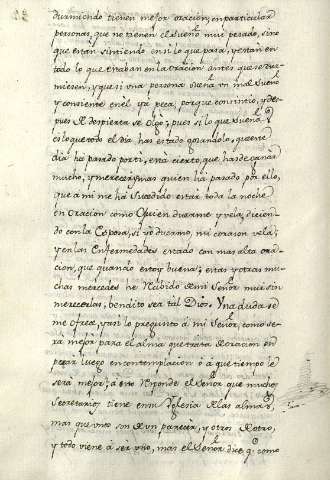 durmiendo tienen mejor oracion, en particular
personas, que no tienen el sueño muy pesado, sino
que estan sintiendo en si lo que pasa, y estan en
todo lo que estaban en la oracion antes que se dur-
miesen, y que si una persona sueña un mal sueño
y consiente en el ya peca, porque consintio, y des-
pues despierta se olgo; pues si lo que sueña
es lo que todo el dia has estado gozandolo, que ese
dia ha pasado por ti, esta cierto, que has de ganar
mucho, y mereceras quien ha pasado por ello,
que a mi me ha sucedido estar toda la noche
en oracion como quien duerme y vela, dicien-
do con la Esposa, si yo duermo, mi corason vela,
y en las Enfermedades estado con mas alta ora-
cion, que quando estoy buena; estas y otras mu-
chas mercedes he Recibido de mi Señor muy sin
merecerlas, bendito sea tal Dios. Una duda se
me ofrece, y assi lo pregunto a mi Señor, como se-
ra mejor para el alma que trata de oracion em
pezar luego en contemplacion o a que tiempo le
sera mejor; a esto Responde el Señor que muchos
secretarios tiene en su Iglesia de las almas,
mas que unos son de un parecer, y otros de otro,
y todo viene a ser uno, mas el Señor dice q como